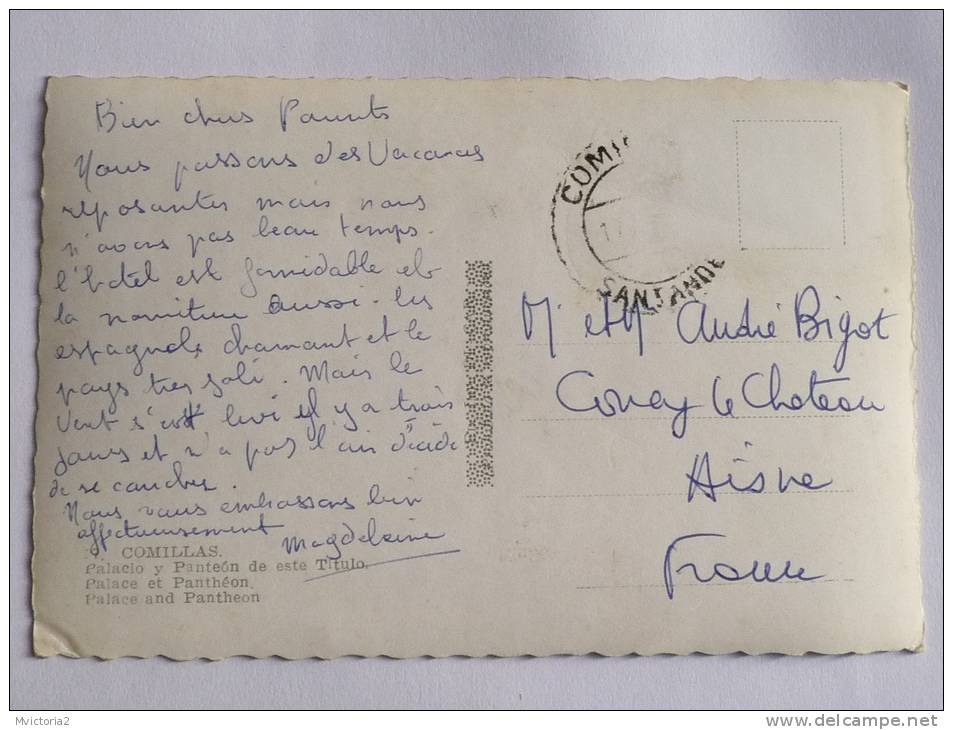 Bien chers Parents
Nous passons des Vacances
reposantes mais nous
n'avons pas beau temps.
l'hotel est formidable et
la nourriture aussi - les
espagnols charmant et le
pays tres joli. Mais le
Vent s'est levé il y a trois
jours et n'a pas l'air décidé
de se coucher.
Nous vous embrassons bien
affectueusement
Magdeleine
COMILLAS.
Palacio y Panteón de este Título.
Palace et Panthéon.
Palace and Pantheon
SANTANDE
M et M André Bigot
Coucy le Chateau
Aisne
France
Mvictoria2
www.delcampe.net